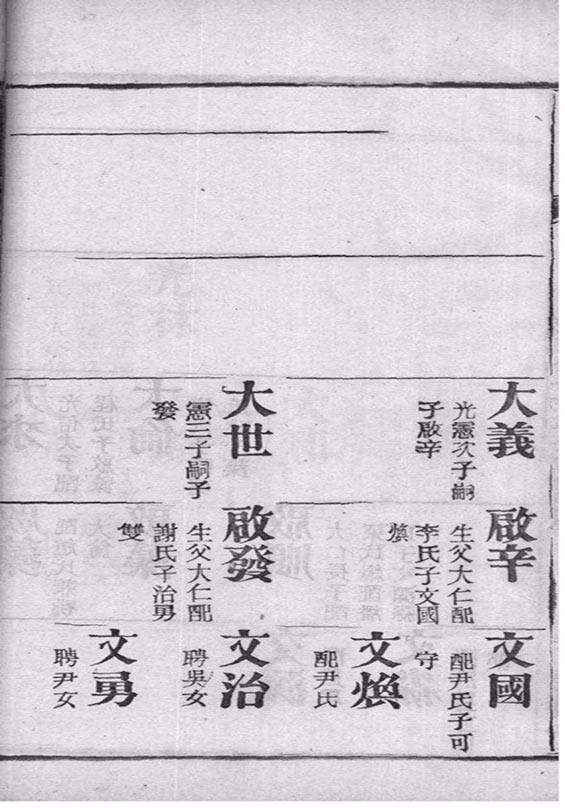 大義
光憲次子嗣
子啟辛
大世
憲三子嗣子
發
啟辛
生父大仁配
李氏子文國
煥
啟發
生父大仁配
謝氏子治男
雙
文國
配尹氏子可
守
文煥
配尹氏
文治
聘吳女
文勇
聘尹女